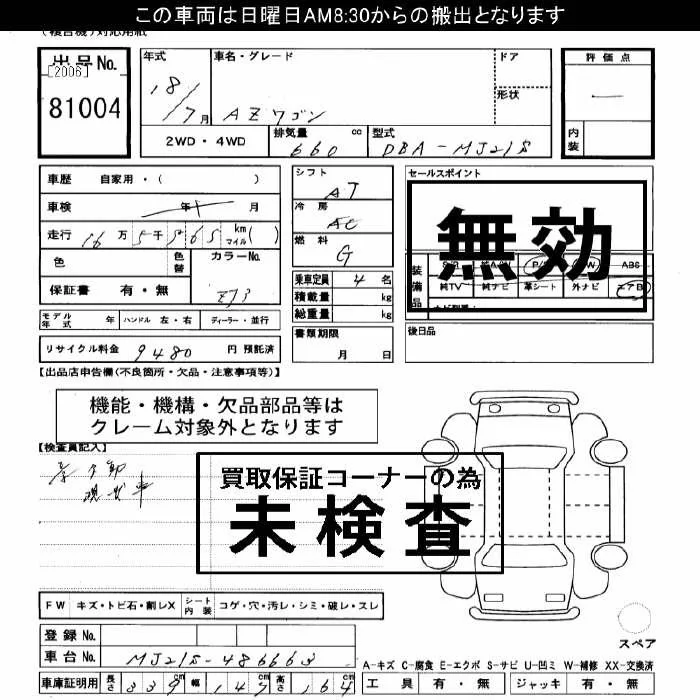 この車両は日曜日AM8:30からの搬出となります
(複合機)対応用紙
出品No.
[2006]
81004
年式
18/7月
車名・グレード
AZワゴン
ドア
形状
評価点
内装
2WD・4WD
排気量 660 cc
型式 DBA-MJ21S
車歴 自家用・( )
車検 年 月
走行 16万5千565 km( ) マイル
色
色替
カラーNo.
ZJ3
保証書 有・無
モデル年式 年 ハンドル 左・右 ディーラー・並行
リサイクル料金 9480 円 預託済
シフト AT
冷房 AC
燃料 G
乗車定員 4 名
積載量 kg
総重量 kg
書類期限
月 日
セールスポイント
無効
装備品
ABS
純TV 純ナビ 革シート 外ナビ エアB
後日品
【出品店申告欄(不良箇所・欠品・注意事項等)】
機能・機構・欠品部品等は
クレーム対象外となります
【検査員記入】
買取保証コーナーの為
未検査
FW キズ・トビ石・割レX
シート内装 コゲ・穴・汚レ・シミ・破レ・スレ
登録No.
車台No. MJ21S-486663
車庫証明用 長さ 339cm 幅 147cm 高さ 164cm
スペア
A-キズ C-腐食 E-エクボ S-サビ U-凹ミ W-補修 XX-交換済
工具 有・無 ジャッキ 有・無